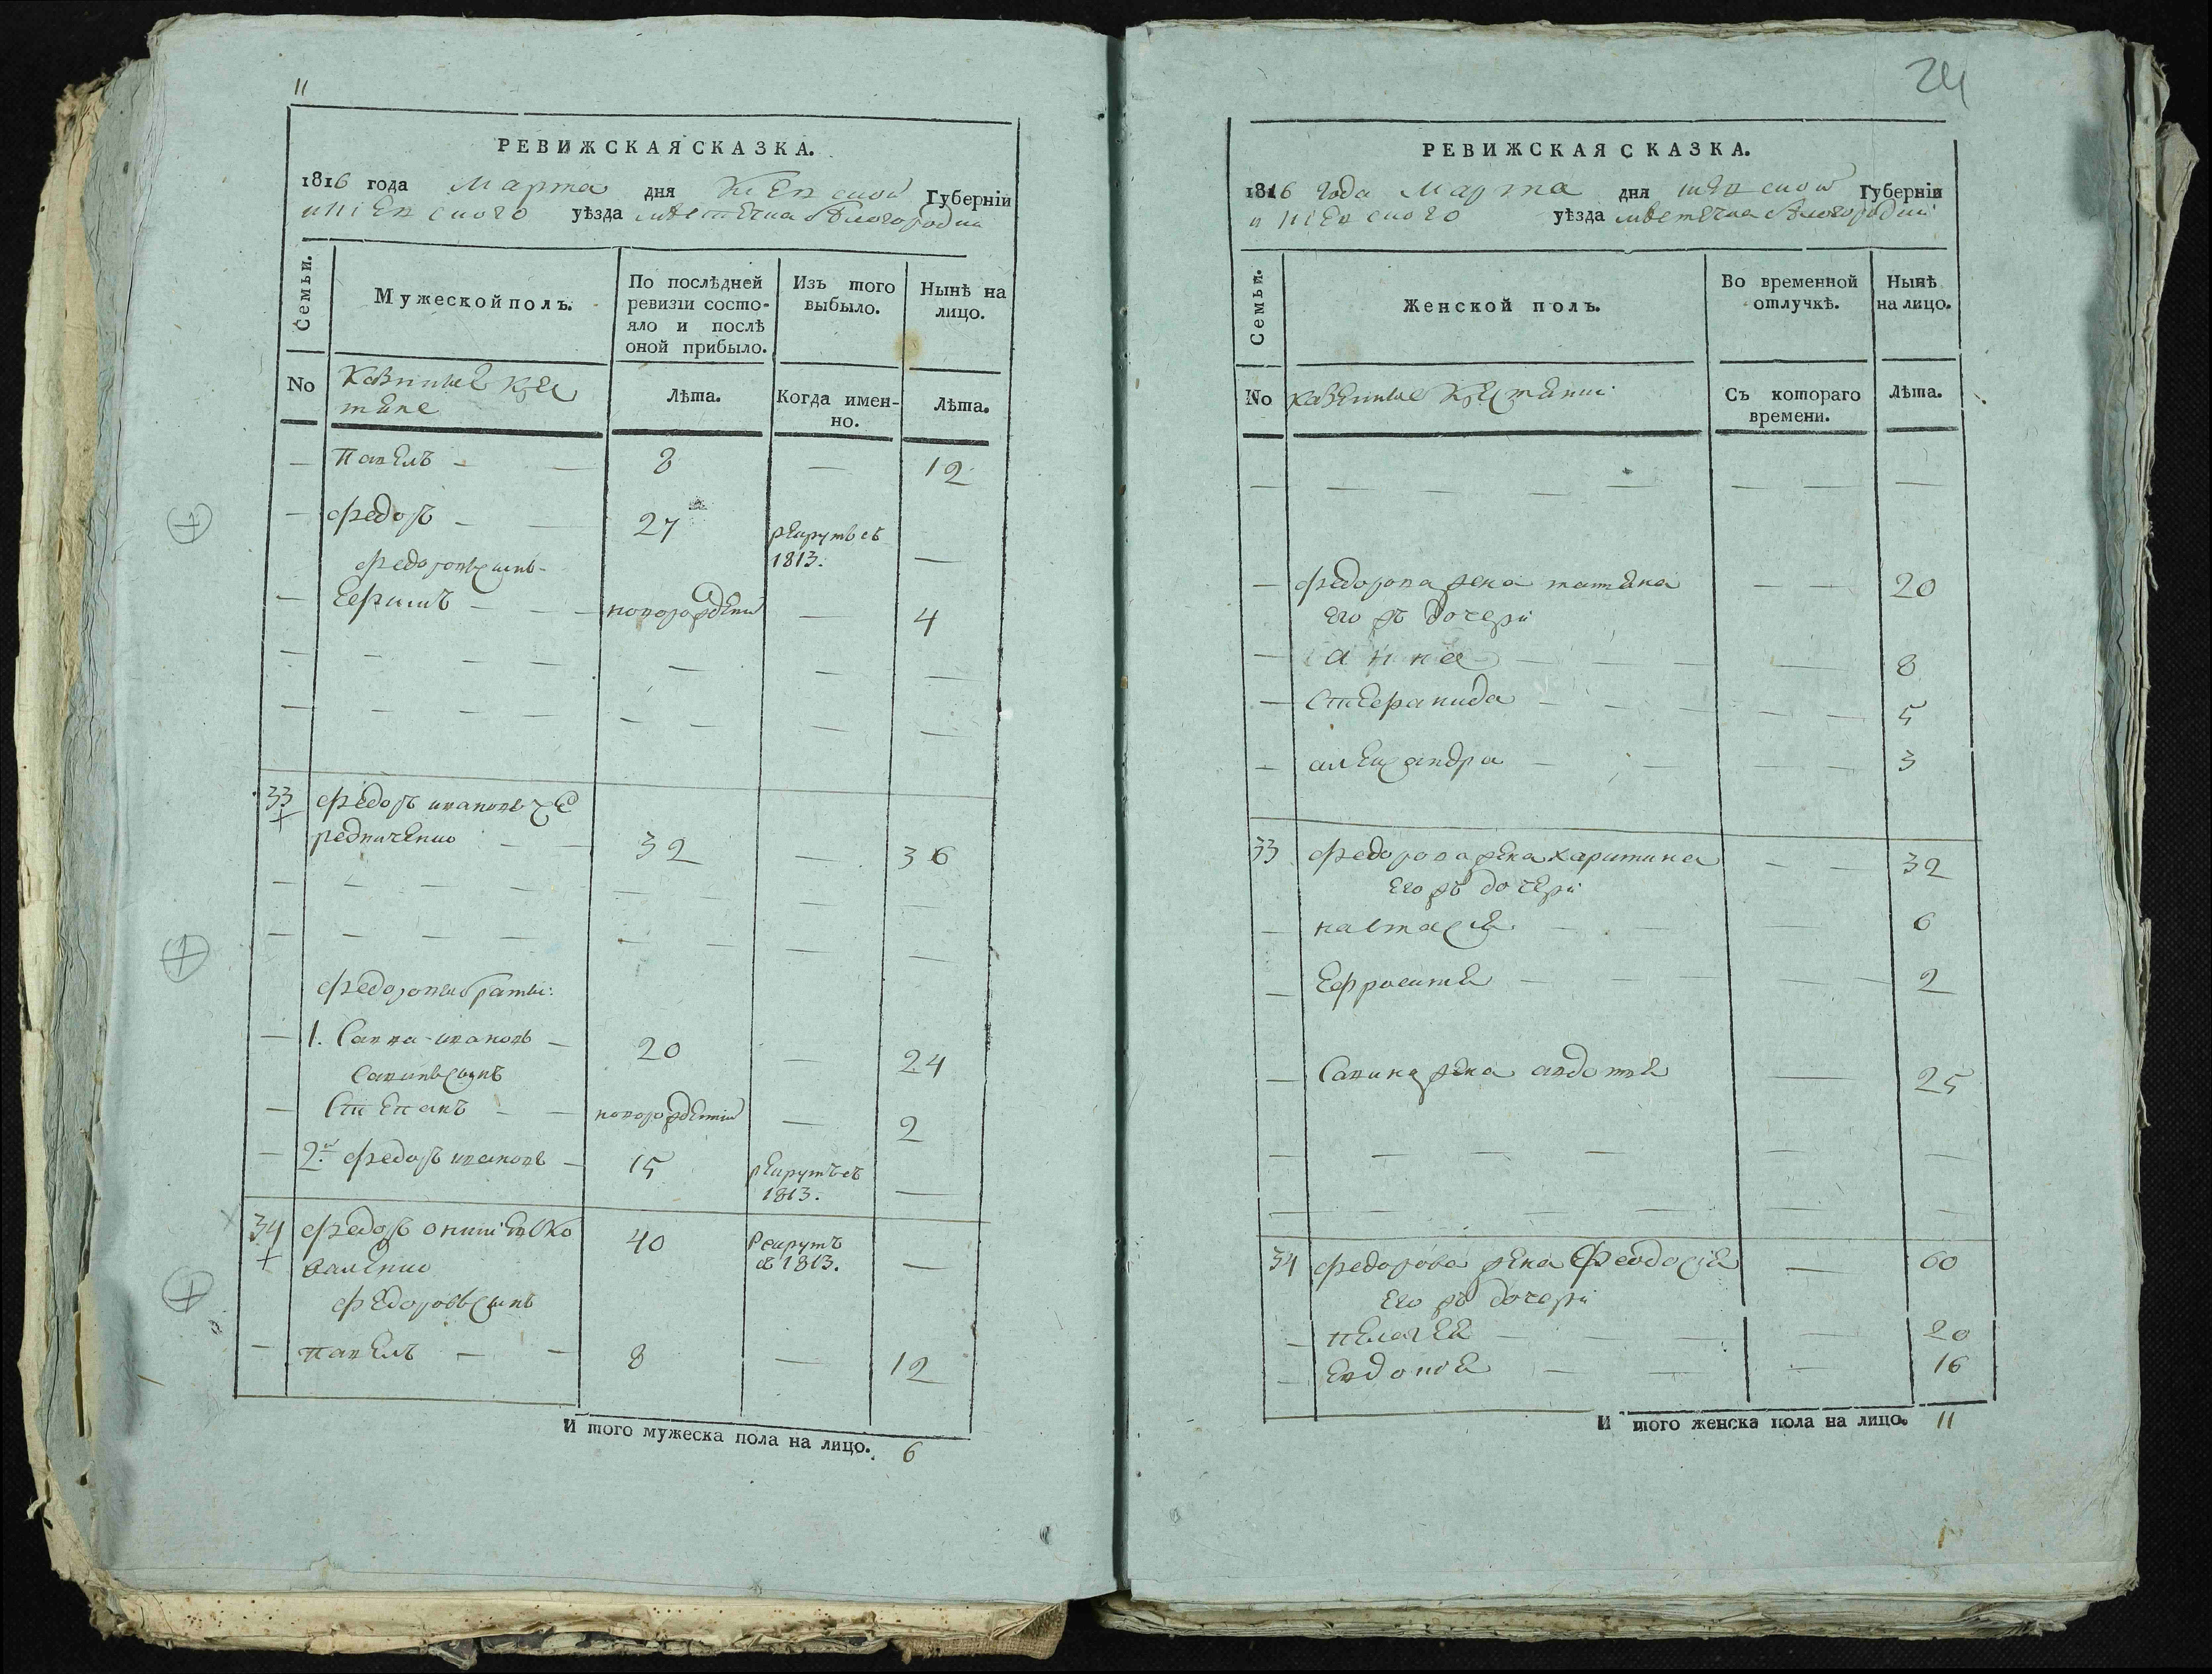 11
РЕВИЖСКАЯ СКАЗКА.
1816 года Марта дня Киевской Губернїи
и Киевского уѣзда местечка Белогородки
Семьи.
Мужеской полъ.
По послѣдней ревизїи состояло и послѣ оной прибыло.
Изъ того выбыло.
Нынѣ на лицо.
No
Казенные крестяне
Лѣта.
Когда именно.
Лѣта.
— Павелъ — 8 — 12
— Федоръ — 27 рекрутъ въ 1813. —
Федоровъ сынъ
— Ефимъ — новорожденъ — 4
33 Федоръ Ивановъ Чередниченко — 32 — 36
Федоровы браты:
— 1. Савва Ивановъ — 20 — 24
Савинъ сынъ
— Степанъ — новорожденъ — 2
— 2й Федоръ Ивановъ — 15 рекрутъ въ 1813. —
34 Федоръ Коваленко 40 Рекрутъ в 1813. —
Федоровъ сынъ
— Павелъ — 8 — 12
И того мужеска пола на лицо. 6
24
РЕВИЖСКАЯ СКАЗКА.
1816 года Марта дня Киевской Губернїи
и Киевского уѣзда местечка Белогородки
Семьи.
Женской полъ.
Во временной отлучкѣ.
Нынѣ на лицо.
No
Казенные крестяни
Съ котораго времени.
Лѣта.
— Федорова жена Татяна — 20
Его жъ дочери
— Анна — 8
— Степанида — 5
— Александра — 3
33 Федорова жена Харитина — 32
Его жъ дочери
— Настасия — 6
— Ефросиния — 2
— Савина жена Авдотия — 25
34 Федорова жена Феодосия — 60
Его жъ дочери
— Пелагея — 20
— Евдокия — 16
И того женска пола на лицо. 11